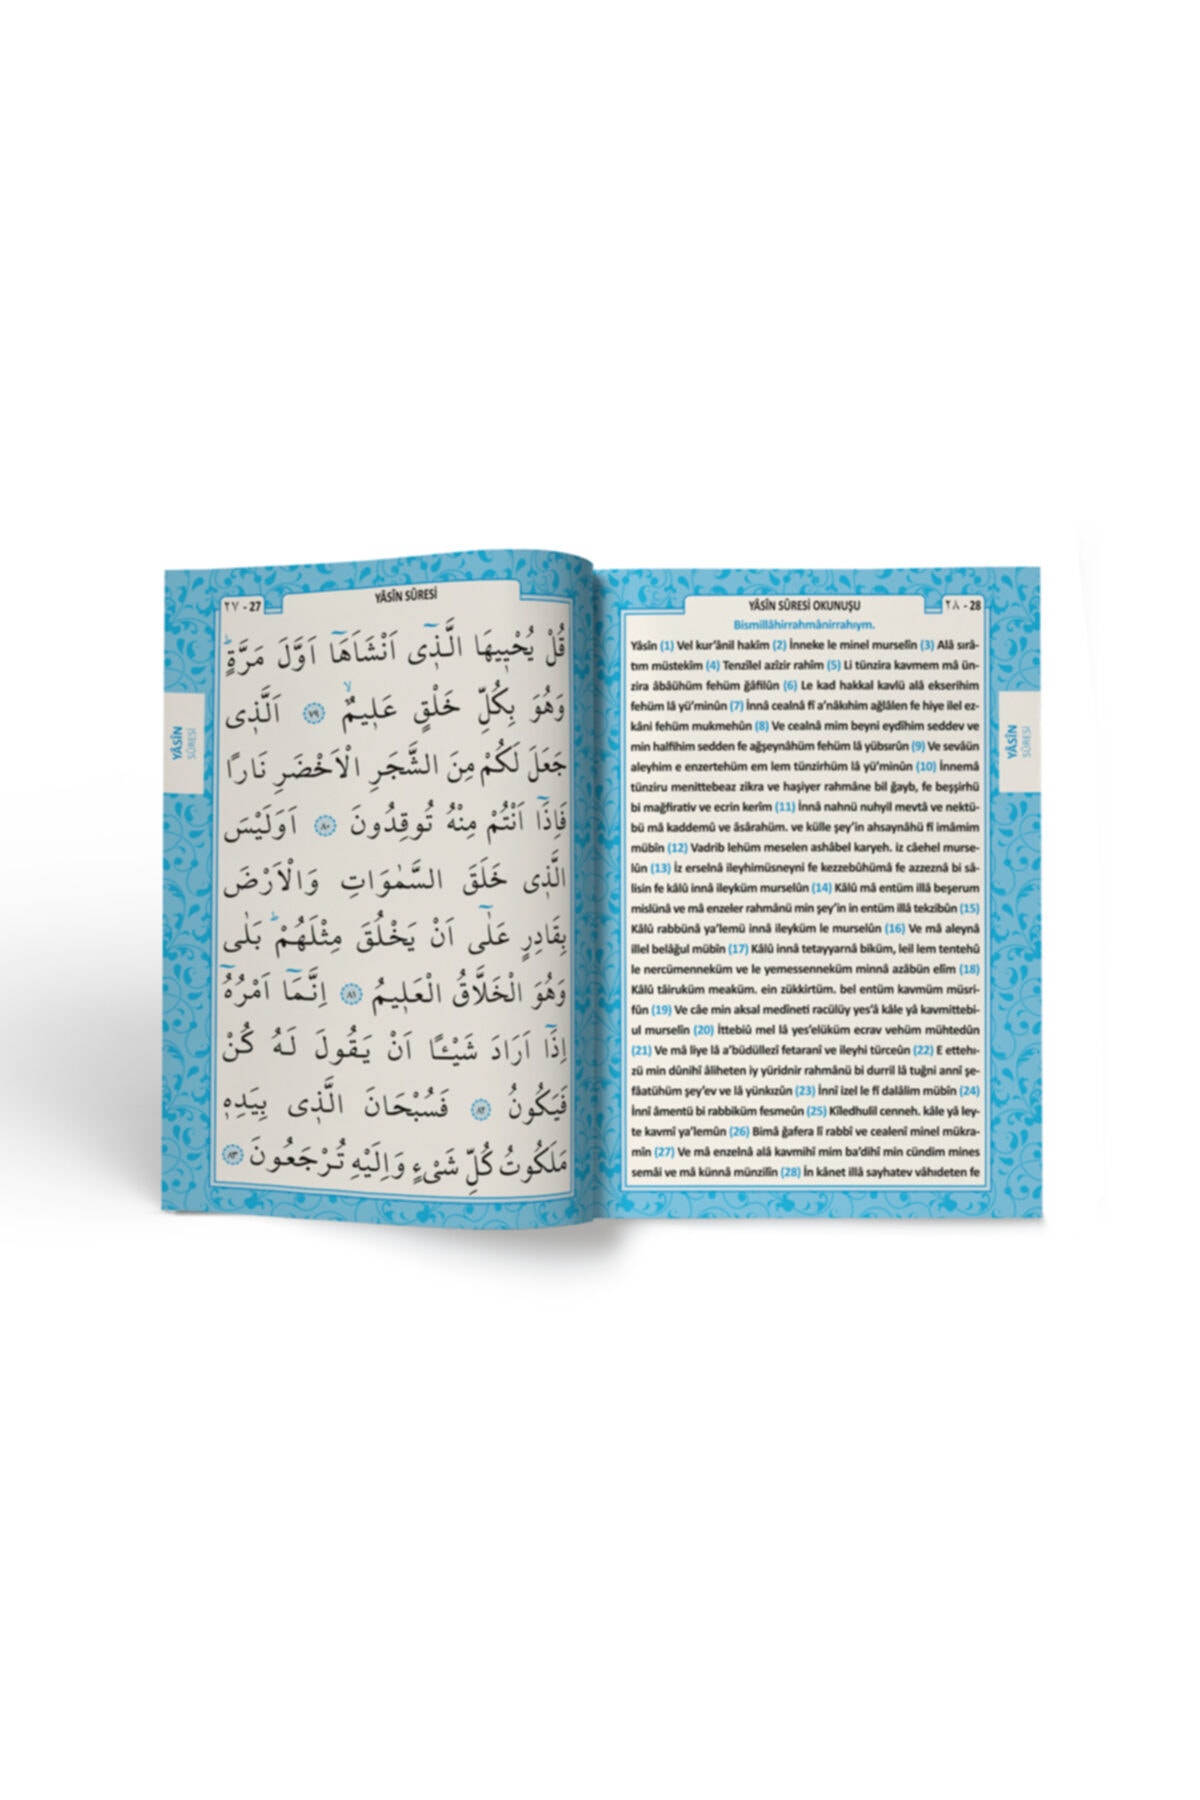 ٢٧ - 27
YÂSÎN SÛRESİ
قُلْ يُحْيِيهَا الَّذٖٓى اَنْشَاَهَٓا اَوَّلَ مَرَّةٍۜ
وَهُوَ بِكُلِّ خَلْقٍ عَلٖيمٌۙ ﴿٧٩﴾ اَلَّذٖى
جَعَلَ لَكُمْ مِنَ الشَّجَرِ الْاَخْضَرِ نَارًا
فَاِذَٓا اَنْتُمْ مِنْهُ تُوقِدُونَ ﴿٨٠﴾ اَوَلَيْسَ
الَّذٖى خَلَقَ السَّمٰوَاتِ وَالْاَرْضَ
بِقَادِرٍ عَلٰٓى اَنْ يَخْلُقَ مِثْلَهُمْۜ بَلٰى
وَهُوَ الْخَلَّاقُ الْعَلٖيمُ ﴿٨١﴾ اِنَّمَٓا اَمْرُهُٓ
اِذَٓا اَرَادَ شَيْـًٔا اَنْ يَقُولَ لَهُ كُنْ
فَيَكُونُ ﴿٨٢﴾ فَسُبْحَانَ الَّذٖى بِيَدِهٖ
مَلَكُوتُ كُلِّ شَىْءٍ وَاِلَيْهِ تُرْجَعُونَ ﴿٨٣﴾
YÂSÎN
SÛRESİ
YÂSÎN SÛRESİ OKUNUŞU
٢٨ - 28
Bismillâhirrahmânirrahıym.
Yâsîn (1) Vel kur'ânil hakîm (2) İnneke le minel murselîn (3) Alâ sırâ-
tım müstekîm (4) Tenzîlel azîzir rahîm (5) Li tünzira kavmem mâ ün-
zira âbâühüm fehüm ğâfilûn (6) Le kad hakkal kavlü alâ ekserihim
fehüm lâ yü'minûn (7) İnnâ cealnâ fî a'nâkıhim ağlâlen fe hiye ilel ez-
kâni fehüm mukmehûn (8) Ve cealnâ mim beyni eydîhim seddev ve
min halfihim sedden fe ağşeynâhüm fehüm lâ yübsırûn (9) Ve sevâün
aleyhim e enzertehüm em lem tünzirhüm lâ yü'minûn (10) İnnemâ
tünziru menittebeaz zikra ve haşiyer rahmâne bil ğayb, fe beşşirhü
bi mağfirativ ve ecrin kerîm (11) İnnâ nahnü nuhyil mevtâ ve nektü-
bü mâ kaddemû ve âsârahüm. ve külle şey'in ahsaynâhü fî imâmim
mübîn (12) Vadrib lehüm meselen ashâbel karyeh. iz câehel murse-
lûn (13) İz erselnâ ileyhimüsneyni fe kezzebûhümâ fe azzeznâ bi sâ-
lisin fe kâlû innâ ileyküm murselûn (14) Kâlû mâ entüm illâ beşerum
mislünâ ve mâ enzeler rahmânü min şey'in in entüm illâ tekzibûn (15)
Kâlû rabbünâ ya'lemü innâ ileyküm le murselûn (16) Ve mâ aleynâ
illel belâğul mübîn (17) Kâlû innâ tetayyarnâ biküm, leil lem tentehû
le nercümenneküm ve le yemessenneküm minnâ azâbün elîm (18)
Kâlû tâiruküm meaküm. ein zükkirtüm. bel entüm kavmüm müsri-
fûn (19) Ve câe min aksal medîneti racülüy yes'â kâle yâ kavmittebi-
ul murselîn (20) İttebiû mel lâ yes'elüküm ecrav vehüm mühtedûn
(21) Ve mâ liye lâ a'büdüllezî fetaranî ve ileyhi türceûn (22) E ettehı-
zü min dûnihî âliheten iy yüridnir rahmânü bi durril lâ tuğni annî şe-
fâatühüm şey'ev ve lâ yünkızûn (23) İnnî izel le fî dalâlim mübîn (24)
İnnî âmentü bi rabbiküm fesmeûn (25) Kîledhulil cenneh. kâle yâ ley-
te kavmî ya'lemûn (26) Bimâ ğafera lî rabbî ve cealenî minel mükra-
mîn (27) Ve mâ enzelnâ alâ kavmihî mim ba'dihî min cündim mines
semâi ve mâ künnâ münzilîn (28) İn kânet illâ sayhatev vâhıdeten fe
YÂSÎN
SÛRESİ